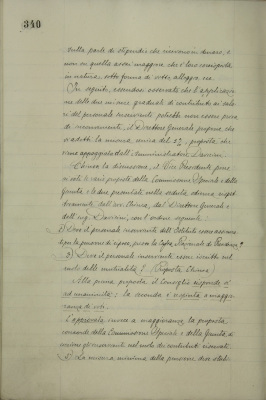 340
sulla parte di stipendio che ricevono in denaro, e
non su quella assai maggiore che è loro corrisposta
in natura sotto forma di vitto, alloggio ecc.
In seguito, essendosi osservato che l'applicazione
delle due misure graduali di contributo ai salari
del personale inserviente potrebbe non essere priva
di inconvenienti, il Direttore Generale propone che
si adotti la misura unica del 2%, proposta, che
viene appoggiata dall'Amministratore
Chiusa la discussione, il Vice Presidente pone
ai voti le varie proposte della Commissione Speciale e della
Giunta, e le due presentate nella seduta odierna rispettivamente
dall'avv. Chiesa, dal Direttore Generale e
dall'ing. con l'ordine seguente:
1) Deve il personale inserviente dell'Istituto essere assicurato
per la pensione di operai, presso la Cassa Nazionale di Previdenza?
2) Deve il personale inserviente essere iscritto nel
ruolo della mutualità? (Proposta Chiesa)
Alla prima proposta il Consiglio risponde sì
ad unanimità; la seconda è respinta a maggioranza
di voti.
È approvata invece a maggioranza la proposta
concorde della Commissione Speciale e della Giunta, di
inserviente nel ruolo dei contributi riservati.
3) La misura minima della pensione deve stabi-